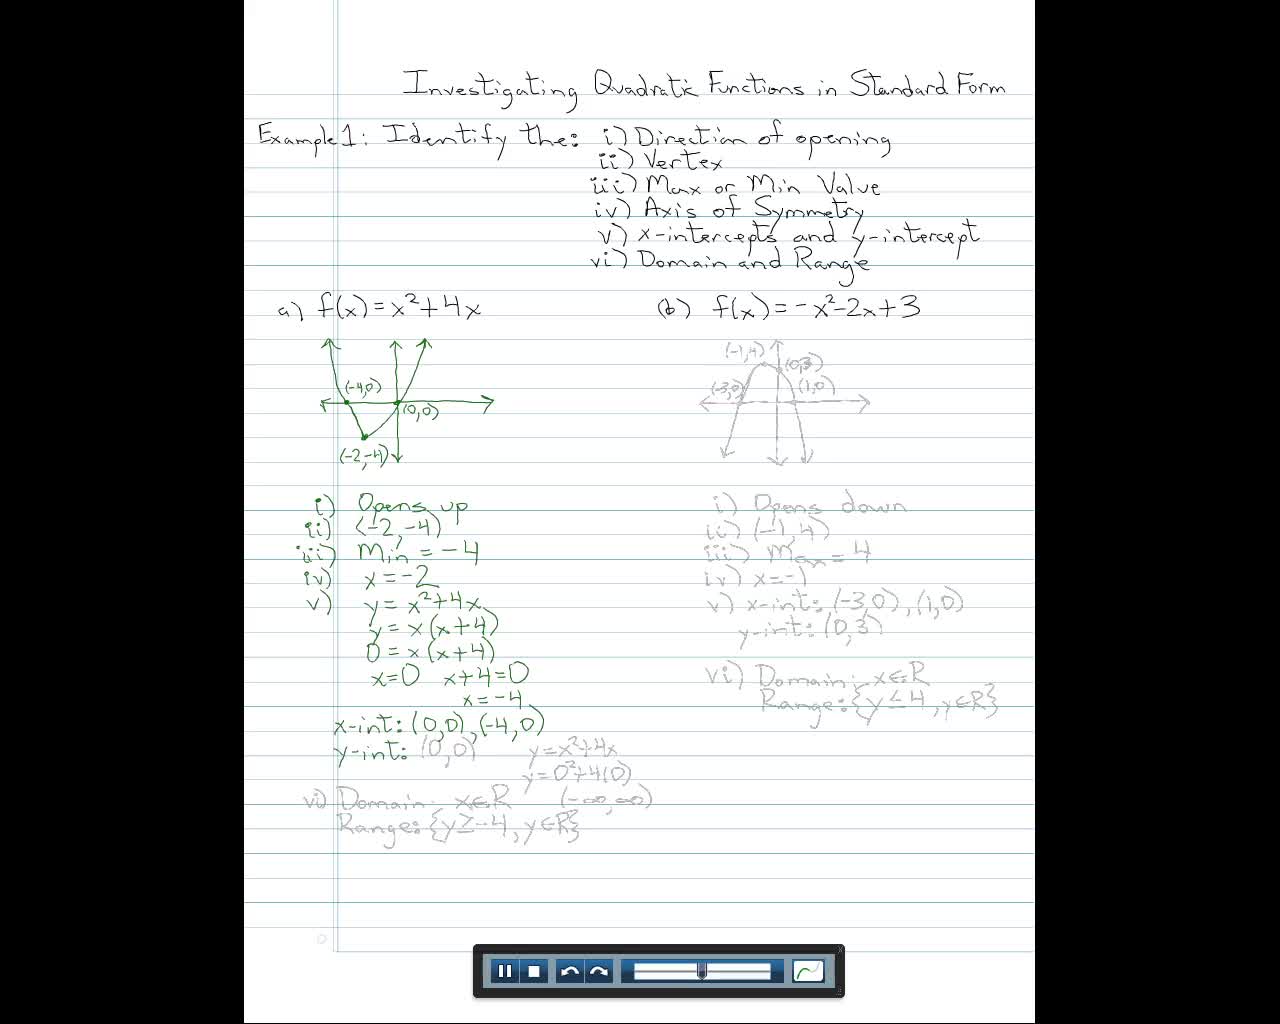 Investigating Quadratic Functions in Standard Form
Example 1: Identify the: i) Direction of opening
ii) Vertex
iii) Max or Min Value
iv) Axis of Symmetry
v) x-intercepts and y-intercept
vi) Domain and Range
a) f(x) = x²+4x
(-4,0)
(0,0)
(-2,-4)
i) Opens up
ii) (-2,-4)
iii) Min = -4
iv) x=-2
v) y = x²+4x
y = x(x+4)
0 = x(x+4)
x=0 x+4=0
x=-4
x-int: (0,0),(-4,0)
y-int: (0,0) y=x²+4x
y=0²+4(0)
vi) Domain: x∈R (-∞,∞)
Range: {y≥-4, y∈R}
(b) f(x) = -x²-2x+3
(-1,4)
(0,3)
(-3,0)
(1,0)
i) Opens down
ii) (-1,4)
iii) Max = 4
iv) x=-1
v) x-int: (-3,0), (1,0)
y-int: (0,3)
vi) Domain: x∈R
Range: {y≤4, y∈R}